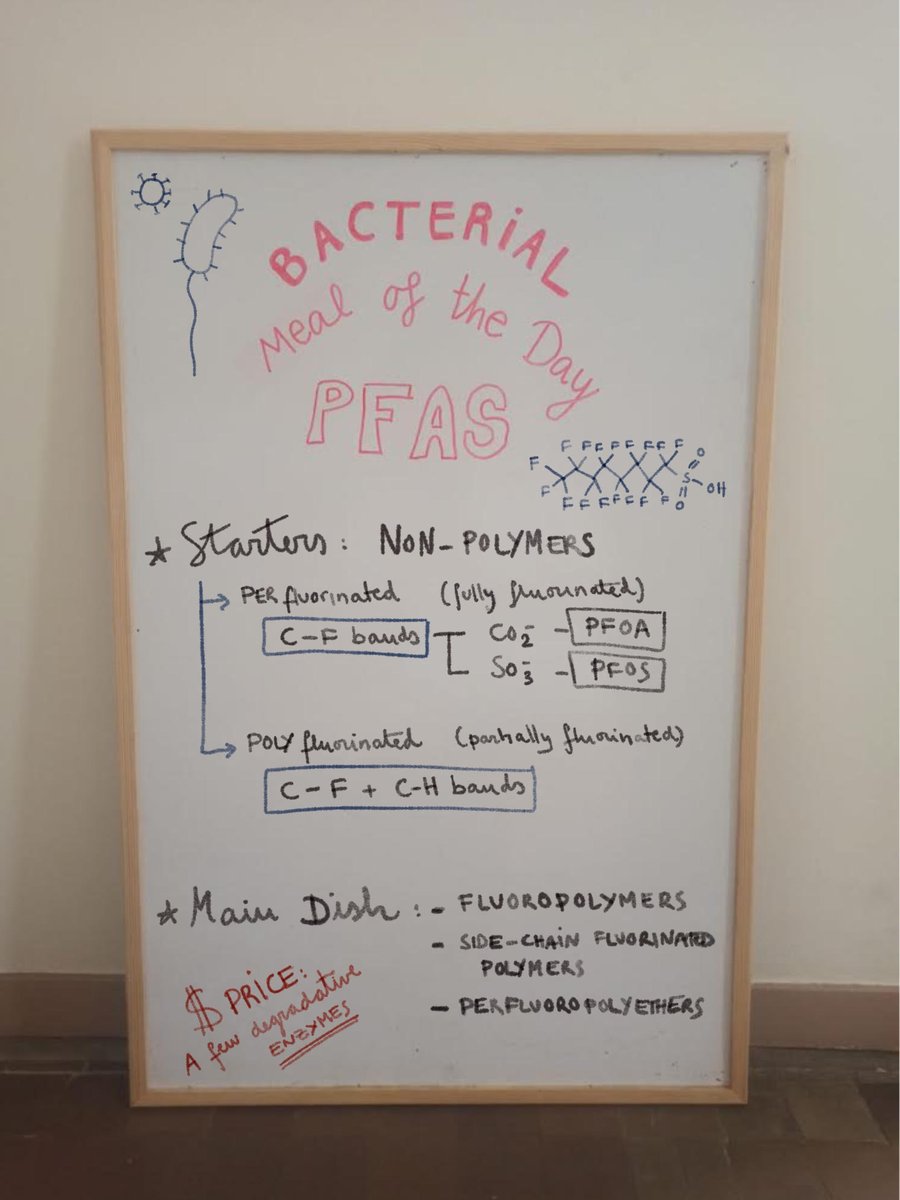 BACTERiAL
Meal of the Day
PFAS
F F F F F F F F
F F F F F F F F
S O O OH
★ Starters: NON-POLYMERS
PERfluorinated (fully fluorinated)
C-F bands CO₂⁻ - PFOA
SO₃⁻ - PFOS
POLYfluorinated (partially fluorinated)
C-F + C-H bands
★ Main Dish: - FLUOROPOLYMERS
- SIDE-CHAiN FLUORINATED
POLYMERS
- PERFLUOROPOLYETHERS
$ PRICE:
A few degradative
ENZYMES